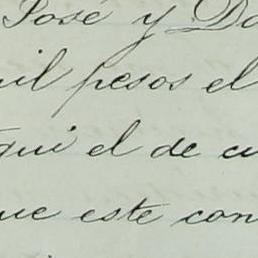 José y Do
mil pesos el
qui el de cu
que este con